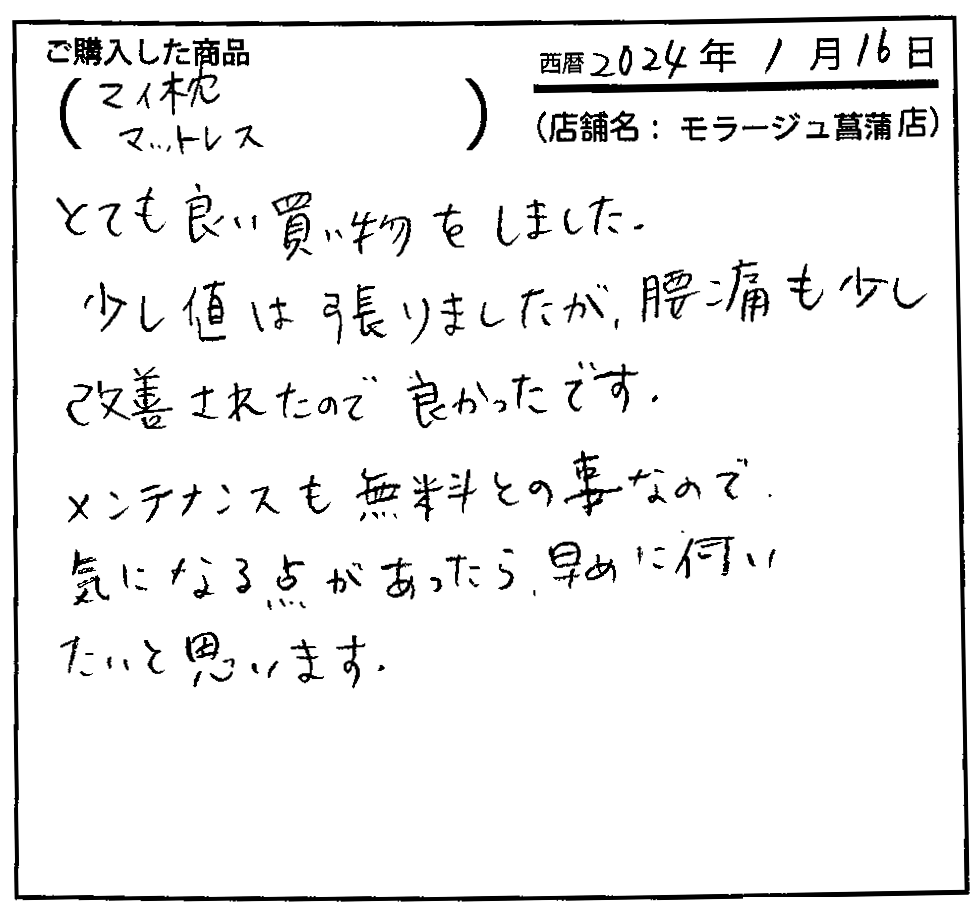 ご購入した商品
西暦2024年1月16日
(マイ枕
マットレス)
(店舗名：モラージュ菖蒲店)
とても良い買い物をしました。
少し値は張りましたが、腰痛も少し
改善されたので良かったです。
メンテナンスも無料との事なので、
気になる点があったら、早めに伺い
たいと思います。